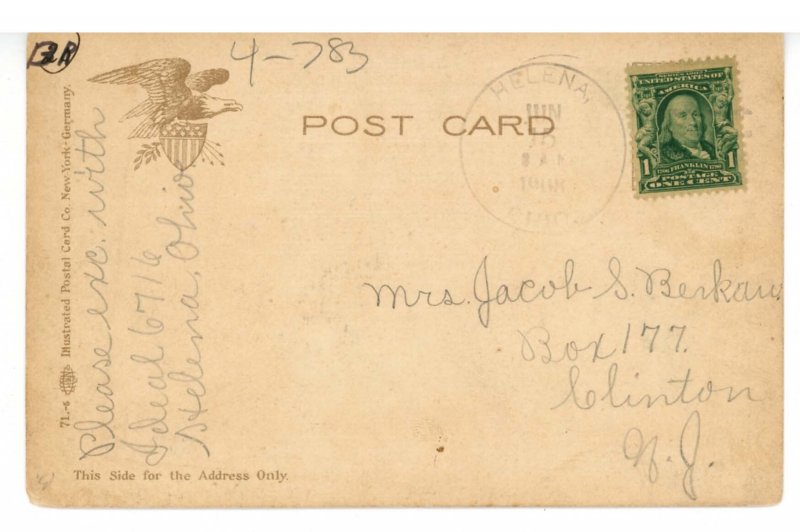 4-783
POST CARD
HELENA,
JUN
OHIO.
SERIES 1902
UNITED STATES OF
AMERICA
1 1706 FRANKLIN 1790 1
POSTAGE
ONE CENT
Mrs. Jacob S. Berkaw
Box 177.
Clinton
N.J.
Please exc. with
Ideal 6716
Helena, Ohio
71.-6 Illustrated Postal Card Co. New-York-Germany.
This Side for the Address Only.